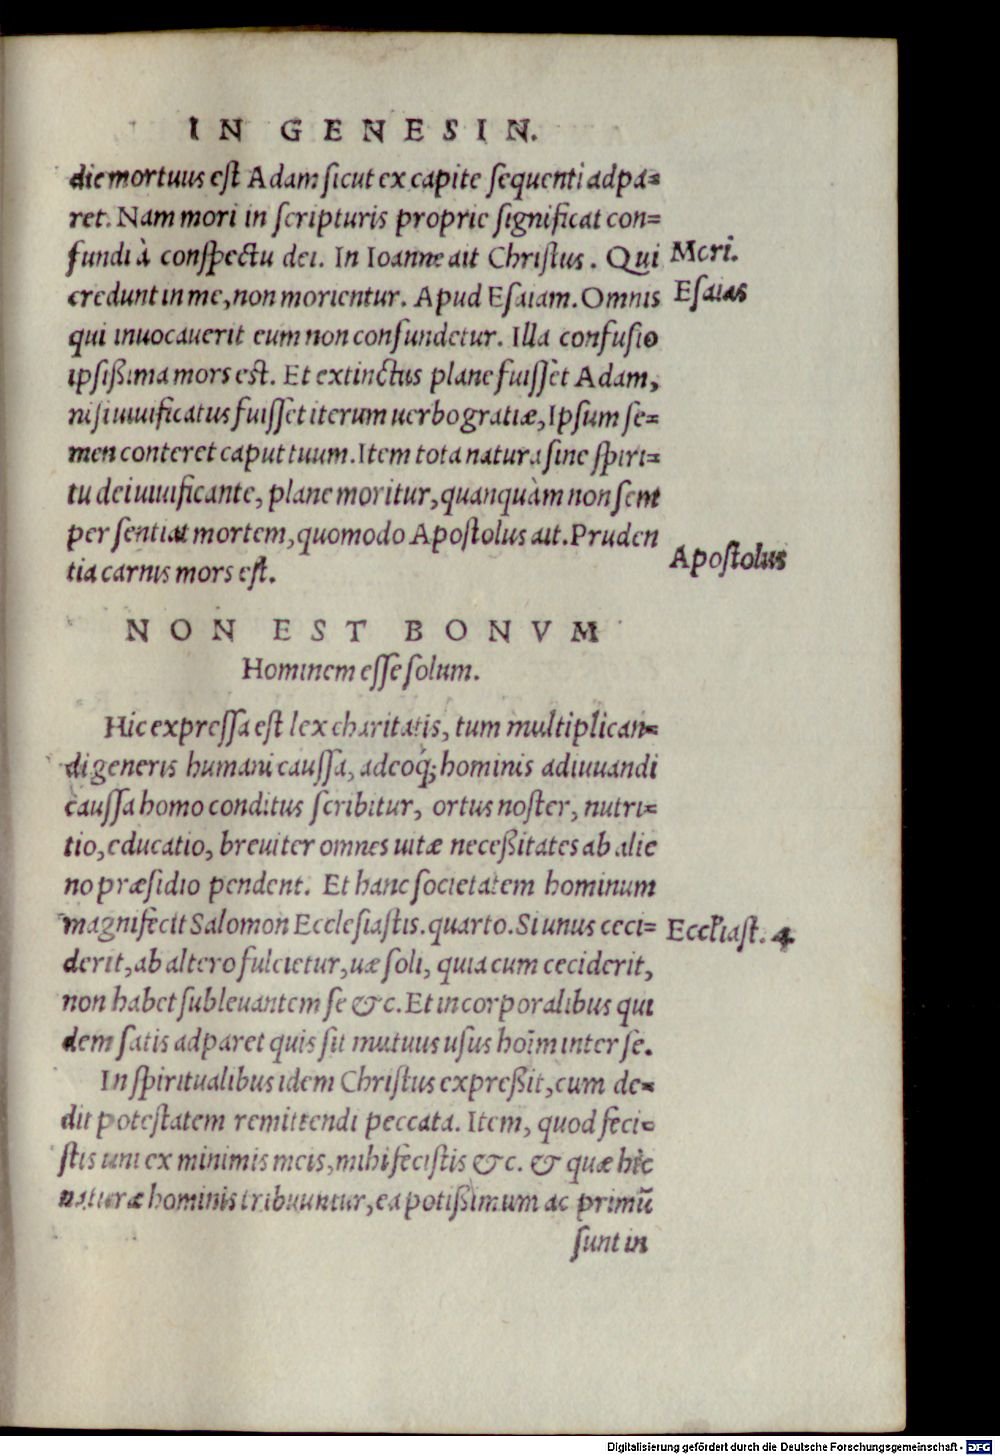 IN GENESIN.
die mortuus est Adam sicut ex capite sequenti adpa=
ret. Nam mori in scripturis proprie significat con=
fundi à conspectu dei. In Ioanne ait Christus. Qui
Mori.
credunt in me, non morientur. Apud Esaiam. Omnis
Esaias
qui inuocauerit eum non confundetur. Illa confusio
ipsißima mors est. Et extinctus plane fuisset Adam,
nisi uiuificatus fuisset iterum uerbo gratiæ, Ipsum se=
men conteret caput tuum. Item tota natura sine spiri=
tu dei uiuificante, plane moritur, quanquàm non sem
per sentiat mortem, quomodo Apostolus ait. Pruden
Apostolus
tia carnis mors est.
NON EST BONVM
Hominem esse solum.
Hic expressa est lex charitatis, tum multiplican=
di generis humani caussa, adeoq́; hominis adiuuandi
caussa homo conditus scribitur, ortus noster, nutri=
tio, educatio, breuiter omnes uitæ neceßitates ab alie
no præsidio pendent. Et hanc societatem hominum
magnifecit Salomon Ecclesiastis. quarto. Si unus ceci=
Eccl'iast. 4.
derit, ab altero fulcietur, uæ soli, quia cum ceciderit,
non habet subleuantem se &c. Et in corporalibus qui
dem satis adparet quis sit mutuus usus hoīm inter se.
In spiritualibus idem Christus expreßit, cum de=
dit potestatem remittendi peccata. Item, quod feci=
stis uni ex minimis meis, mihi fecistis &c. & quæ hic
naturæ hominis tribuuntur, ea potißimum ac primū
sunt in
Digitalisierung gefördert durch die Deutsche Forschungsgemeinschaft - DFG